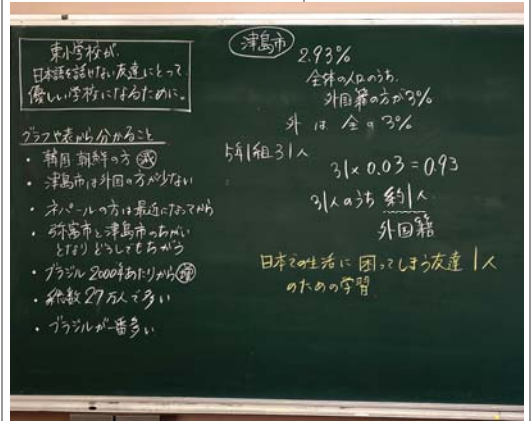 東小学校が、
日本語を話せない友達にとって
優しい学校になるために。
グラフや表から分かること
・韓国 朝鮮の方 減
・津島市は外国の方が少ない
・ネパールの方は最近になってから
・弥富市と津島市のちがい
となり どうしてもちがう
・ブラジル 2000年あたりから 増
・総数 27万人で多い
・ブラジルが一番多い
津島市
2.93%
全体の人口のうち、
外国籍の方が3%
外 は 全 の 3%
5年1組31人
31×0.03=0.93
31人のうち 約1人
外国籍
日本での生活に 困ってしまう友達 1人
のための学習